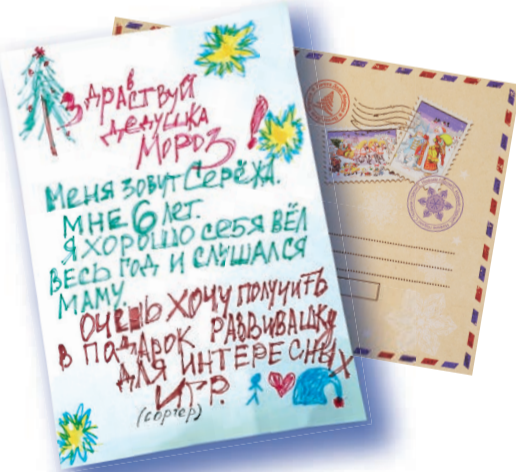 Здравствуй
дедушка
Мороз!
Меня зовут Серёжа.
Мне 6 лет.
Я хорошо себя вёл
весь год и слушался
маму.
Очень хочу получить
в подарок развивашку
для интересных
игр.
(сортер)